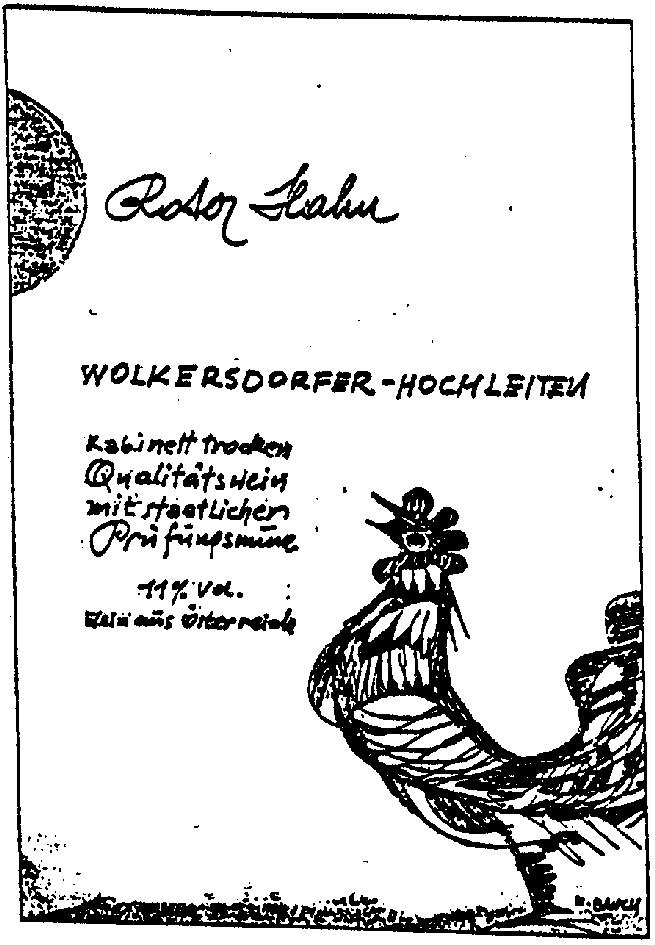 Roter Hahn
WOLKERSDORFER-HOCHLEITEN
Kabinett trocken
Qualitätswein
mit staatlicher
Prüfungsnũme
11% Vol.
Wein aũs Österreich